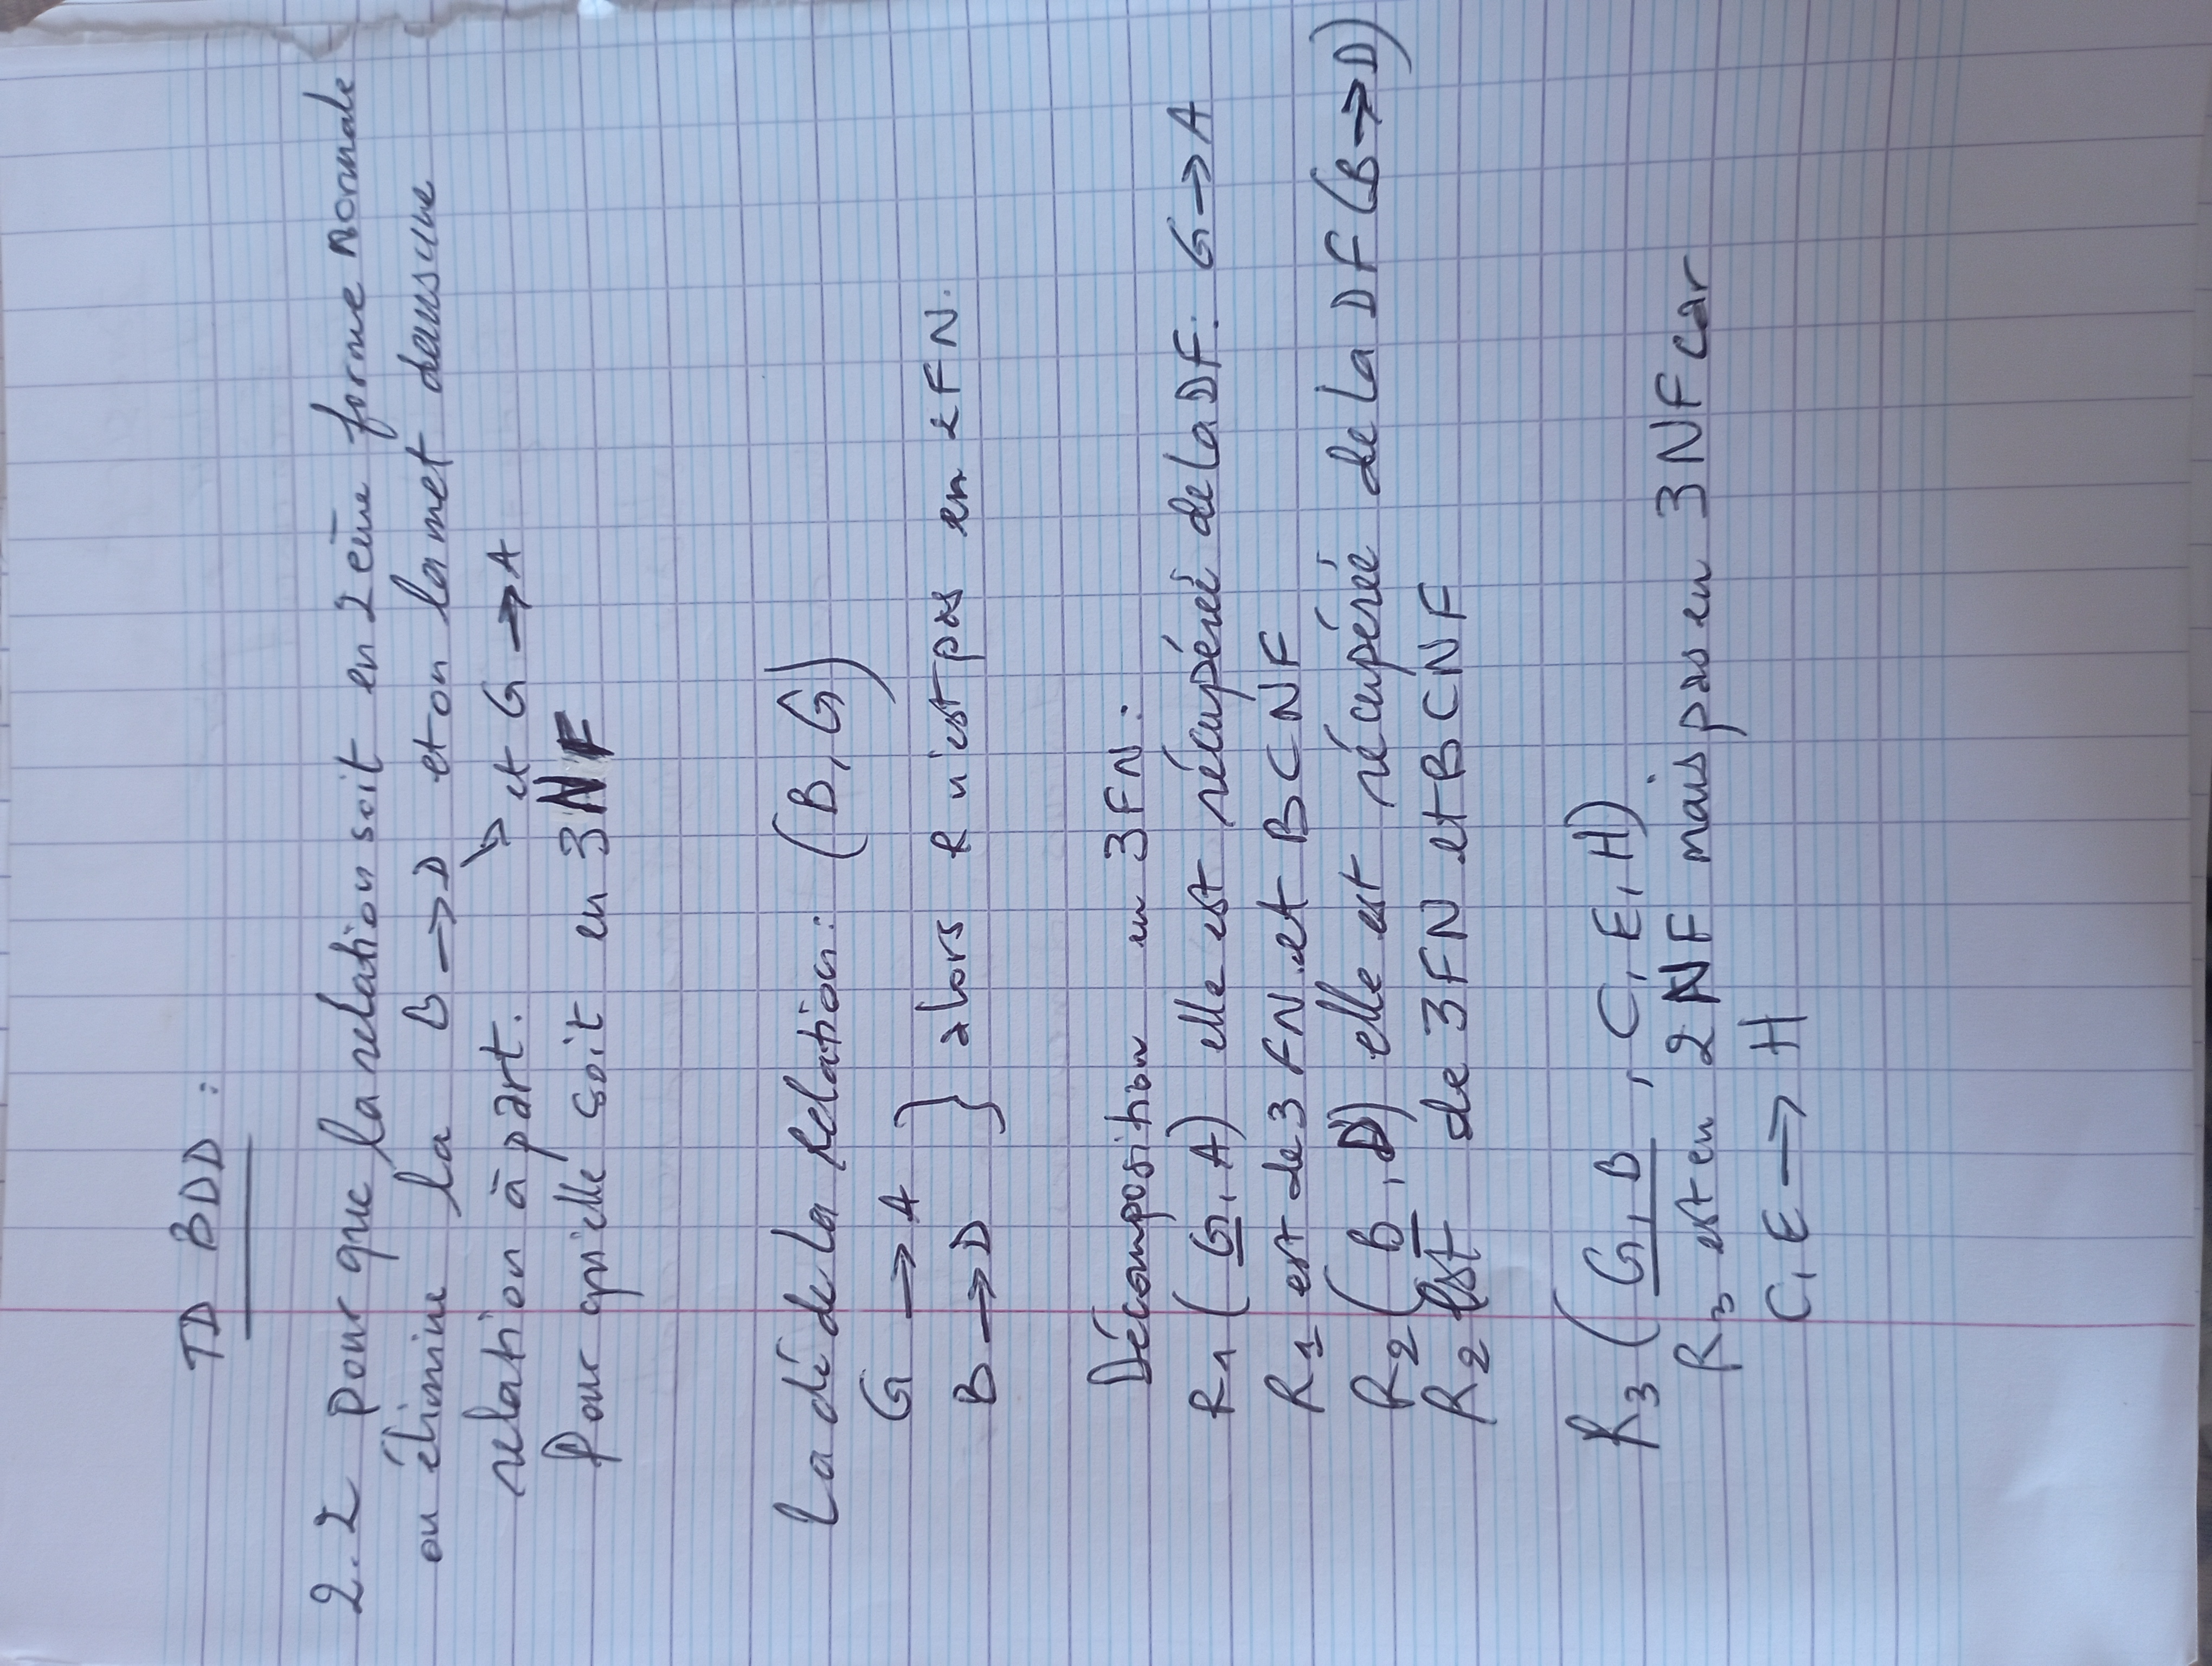 TD BDD :
2.2 Pour que la relation soit en 2ème forme normale
on élimine la B → D et on la met dans une
relation à part. ↘ et G → A
Pour qu'elle soit en 3NF
La clé de la Relation : (B, G)
G → A
B → D } alors R n'est pas en 2FN.
Décomposition en 3FN :
R1 (G, A) elle est récupérée de la DF : G → A
R1 est de 3FN et BCNF
R2 (B, D) elle est récupérée de la DF (B → D)
R2 est de 3FN et BCNF
R3 (G, B, C, E, H)
R3 est en 2NF mais pas en 3NF car
C, E → H